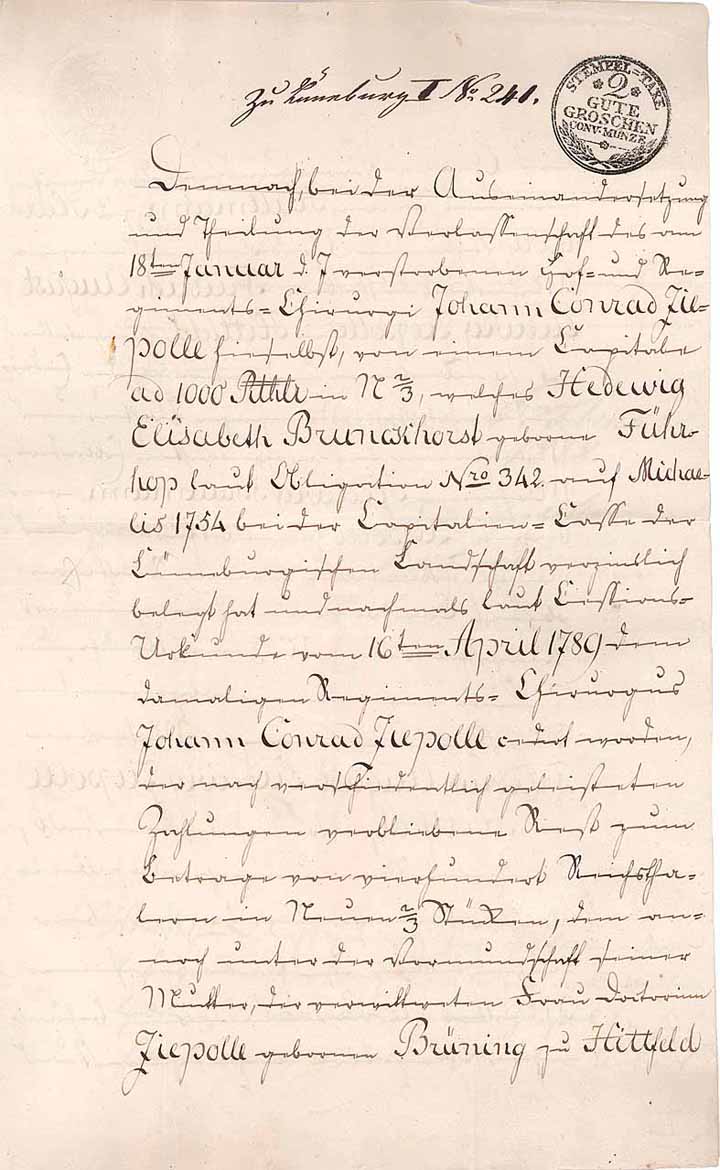 Zu Lüneburg I No. 241.
STEMPEL=TAXE
2
GUTE
GROSCHEN
CONV. MUNZE
Demnach, bei der Auseinandersetzung
und Theilung der Verlassenschaft des am
18ten Januar d. J verstorbenen Hof= und Re=
giments=Chirurgi Johann Conrad Zie=
polle hieselbst, von einem Capitale
ad 1000 Rthlr in N 2/3, welches Hedewig
Elisabeth Brunckhorst geborne Führ=
hop laut Obligation Nro 342. auf Michae=
lis 1754 bei der Capitalien=Casse der
Lüneburgischen Landschaft verzinslich
belegt hat und nachmals laut Cessions=
Urkunde vom 16ten April 1789 dem
damaligen Regiments=Chirurgus
Johann Conrad Ziepolle cedirt worden,
der nach verschiedentlich geleisteten
Zahlungen verbliebene Rest zum
Betrage von vierhundert Reichstha=
lern in Neuen 2/3 Stücken, dem an=
noch unter der Vormundschaft seiner
Mutter, der verwittweten Frau Doctorinn
Ziepolle gebornen Brüning zu Hittfeld